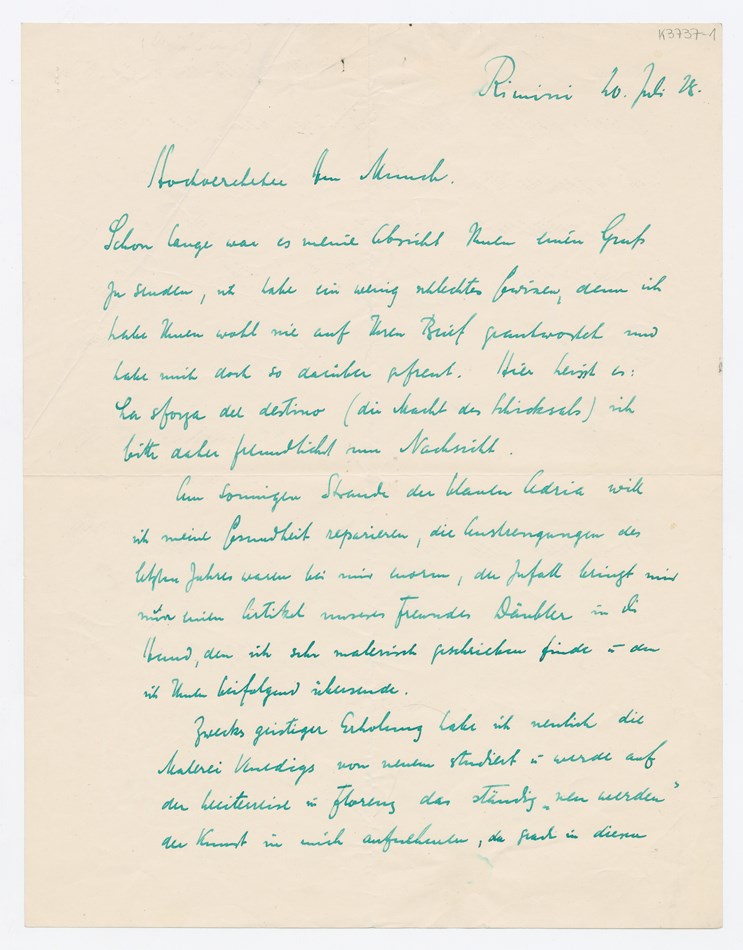 K3737-1
Rimini 20. Juli 28.
Hochverehrter Herr Munch.
Schon lange war es meine Absicht Ihnen einen Gruß
zu senden, ich habe ein wenig schlechtes Gewissen, denn ich
habe Ihnen wohl nie auf Ihren Brief geantwortet und
habe mich doch so darüber gefreut. Hier heisst es:
La sforza del destino (die Macht des Schicksals) ich
bitte daher freundlichst um Nachsicht.
Am sonnigen Strande der blauen Adria will
ich meine Gesundheit reparieren, die Anstrengungen des
letzten Jahres waren bei mir enorm, der Zufall bringt mir
nun einen Artikel unseres Freundes Däubler in die
Hand, den ich sehr malerisch geschrieben finde u den
ich Ihnen beifolgend übersende.
Zwecks geistiger Erholung habe ich neulich die
Malerei Venedigs von neuem studiert u werde auf
der Weiterreise in Florenz das ständig „neu werden"
der Kunst in mich aufnehmen, da grade in diesen